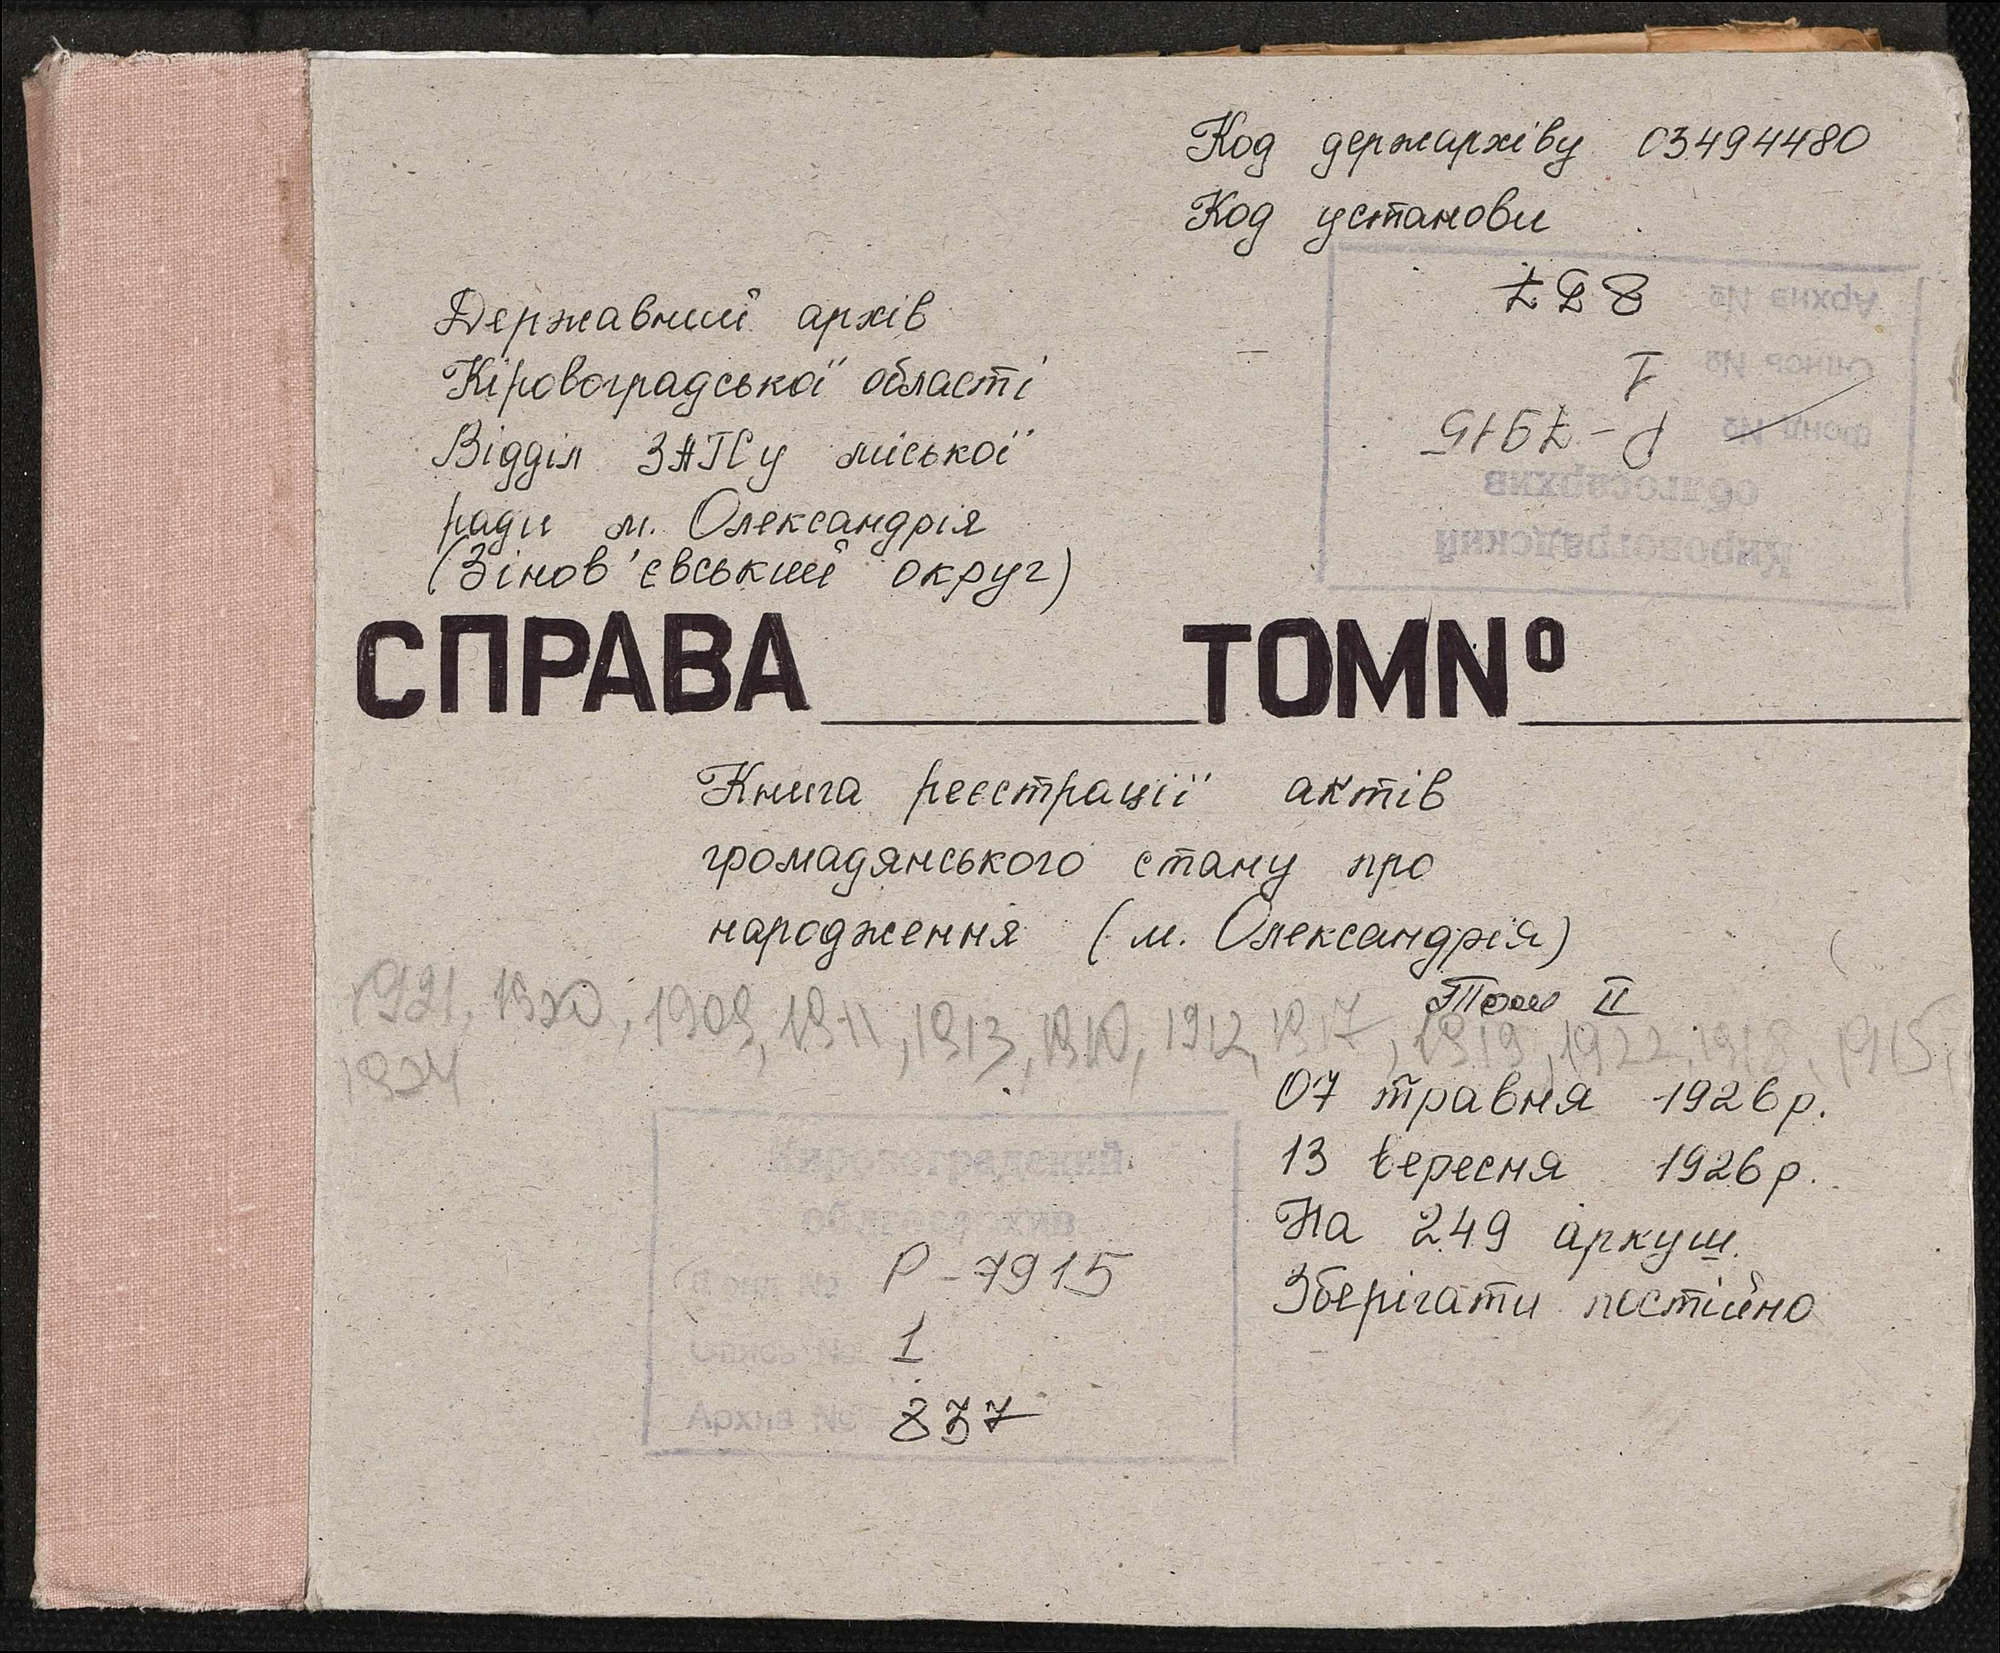 Код держархіву 03494480
Код установи
Архива №
837
Опись №
1
Фонд №
Р-7915
облгосархив
Кировоградский
Державний архів
Кіровоградської області
Відділ ЗАГСу міської
ради м. Олександрія
(Зінов'євський округ)
СПРАВА ТОМ№
Книга реєстрації актів
громадянського стану про
народження (м. Олександрія)
Том II
1921, 1920, 1909, 1911, 1913, 1910, 1912, 1917, 1919, 1922, 1918, 1915,
1924
07 травня 1926 р.
13 вересня 1926 р.
На 249 аркуш.
Зберігати постійно
Кировоградский
облгосархив
Фонд № Р-7915
Опись № 1
Архива № 837